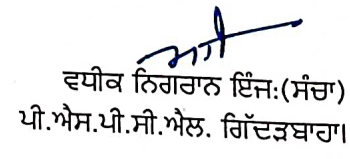 ਵਧੀਕ ਨਿਗਰਾਨ ਇੰਜ:(ਸੰਚਾ)
ਪੀ.ਐਸ.ਪੀ.ਸੀ.ਐਲ. ਗਿੱਦੜਬਾਹਾ।